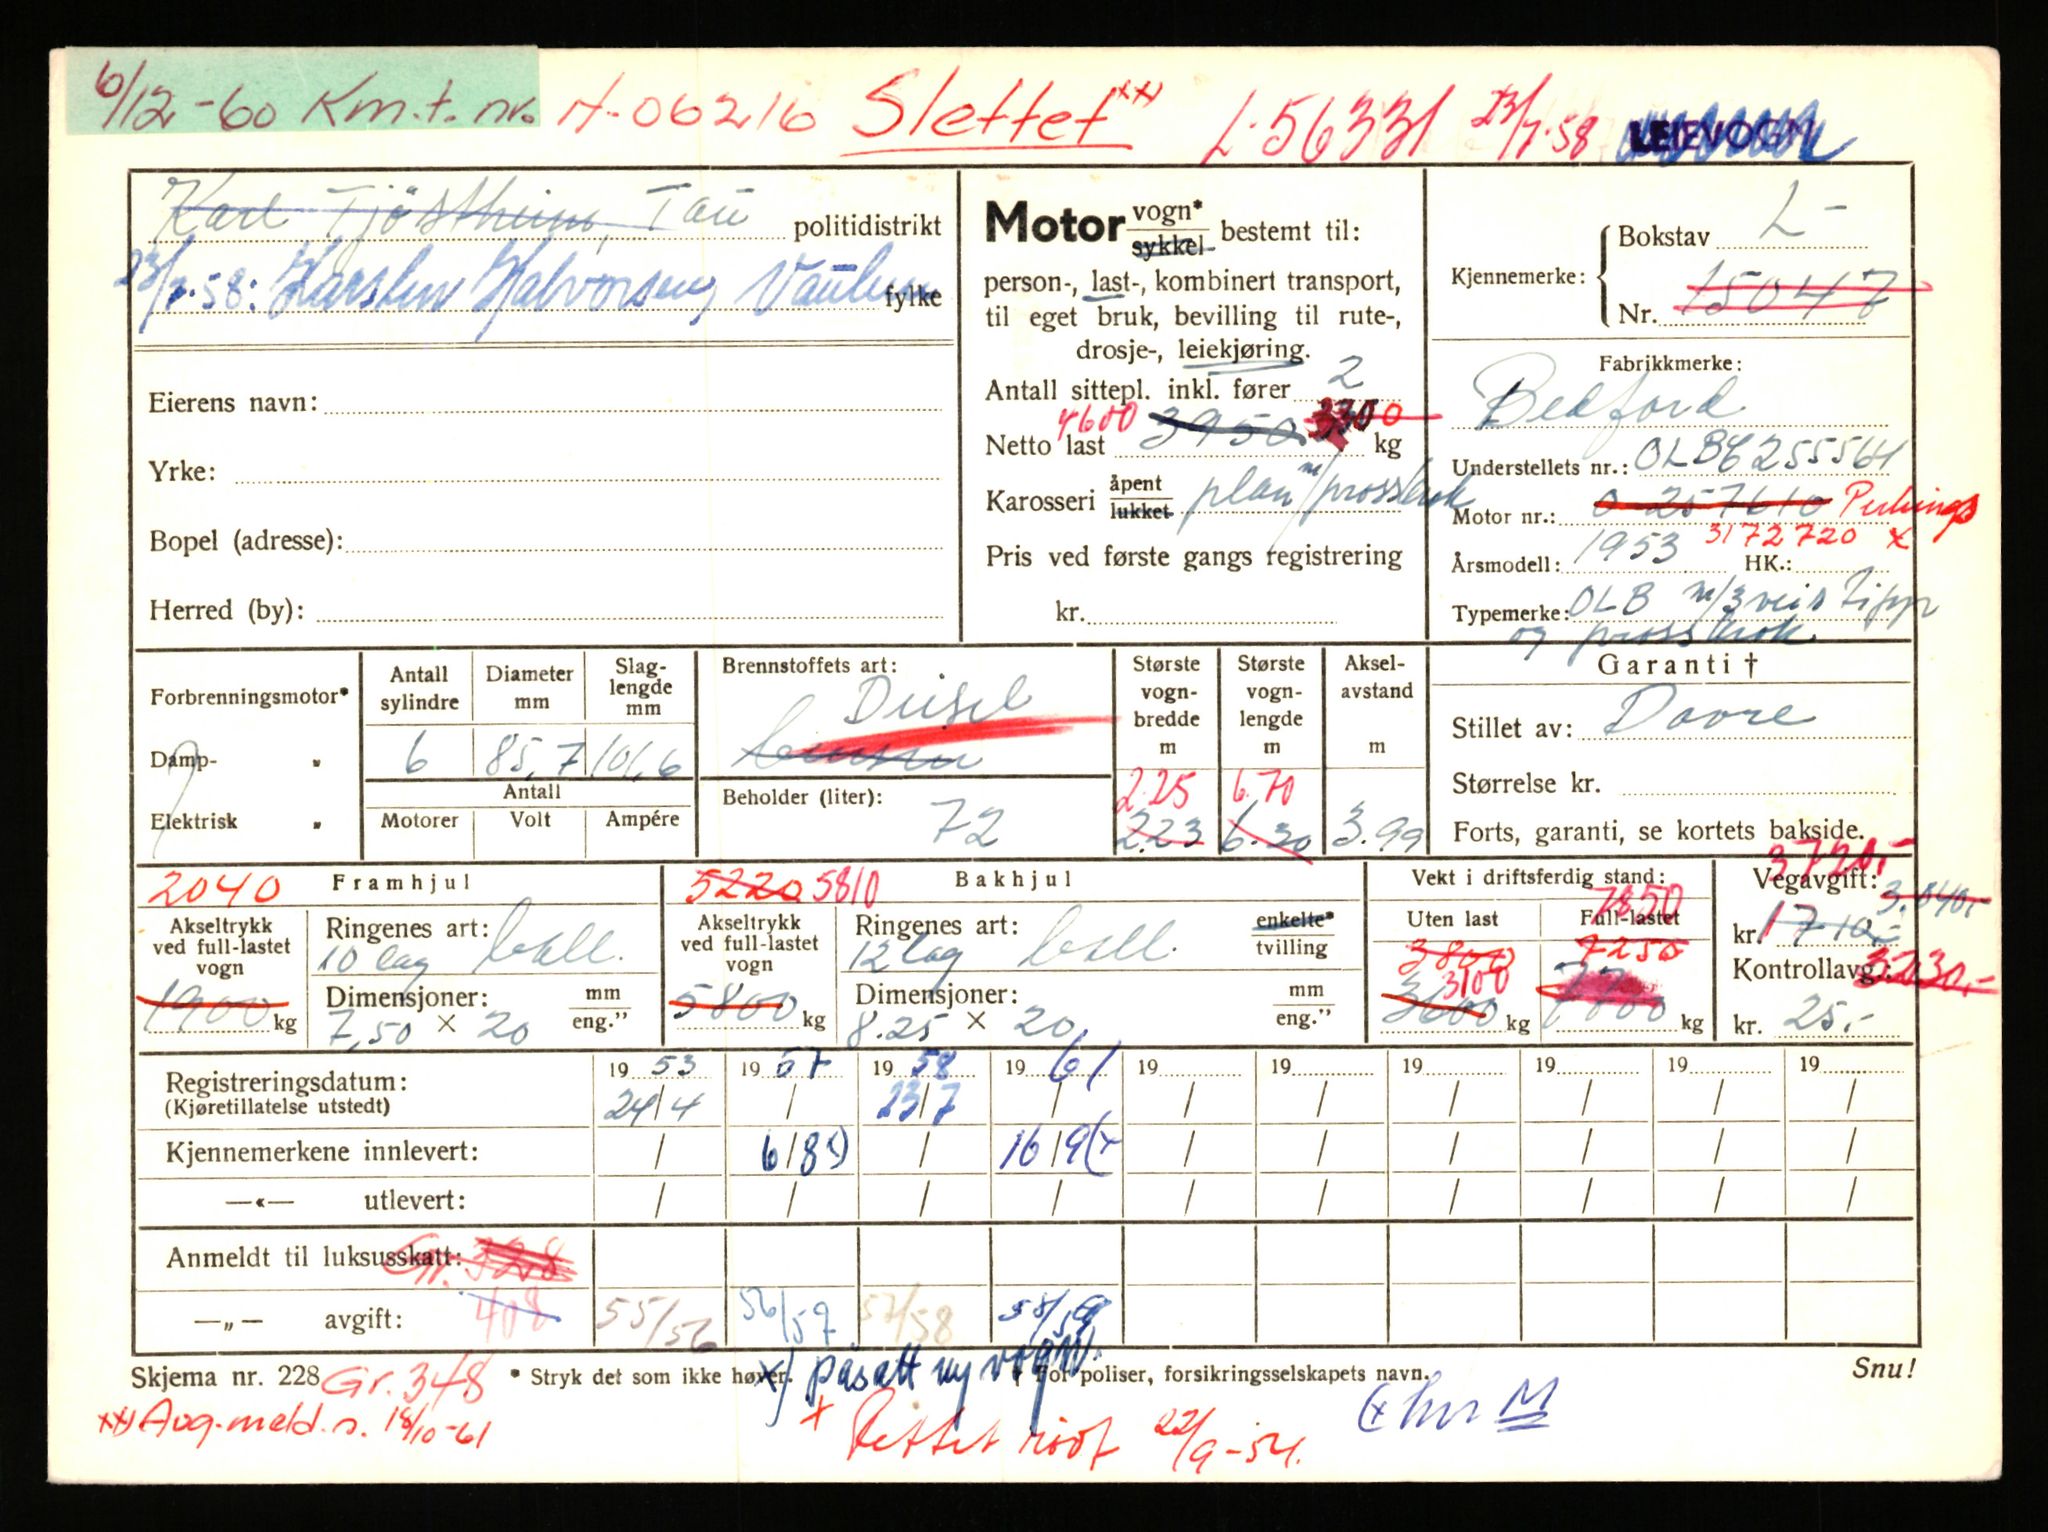 6/12-60 Km.t. nr. A-06216 Slettet xx) L-56331 23/7-58 LEIEVOGN
Karl Tjøstheim, Tau politidistrikt
23/7-58: Karsten Halvorsen, Vaulen fylke
Eierens navn:
Yrke:
Bopel (adresse):
Herred (by):
Motor vogn* sykkel bestemt til:
person-, last-, kombinert transport,
til eget bruk, bevilling til rute-,
drosje-, leiekjøring.
Antall sittepl. inkl. fører 2
Netto last 4600 3950 3300 kg
Karosseri åpent lukket plan m/prosskrok
Pris ved første gangs registrering
kr.
Kjennemerke: Bokstav L-
Nr. 15047
Fabrikkmerke:
Bedford
Understellets nr.: OLBC255564
Motor nr.: 0-257610 Perkings
3172720 x
Årsmodell: 1953 HK.:
Typemerke: OLB m/3veis tipp
og prosskrok.
Forbrenningsmotor*
Damp- „
Elektrisk „
Antall sylindre
6
Diameter mm
85,7
Slag-lengde mm
101,6
Antall
Motorer Volt Ampére
Brennstoffets art:
Diesel
bensin
Beholder (liter):
72
Største vogn-bredde m
2.25
2.23
Største vogn-lengde m
6.70
6.30
Aksel-avstand m
3.99
Garanti †
Stillet av: Dovre
Størrelse kr.
Forts, garanti, se kortets bakside.
2040 Framhjul
Akseltrykk ved full-lastet vogn
1900 kg
Ringenes art:
10 lag ball.
Dimensjoner: mm eng."
7,50 x 20
5220 5810 Bakhjul
Akseltrykk ved full-lastet vogn
5800 kg
Ringenes art: enkelte* tvilling
12 lag ball.
Dimensjoner: mm eng."
8.25 x 20
Vekt i driftsferdig stand:
Uten last
3800
3100
3600 kg
Full-lastet
7850
7250
kg
3720,-
Vegavgift: 3.040,-
kr. 1710,-
Kontrollavg.: 3230,-
kr. 25,-
Registreringsdatum: 1953 1957 1958 1961 19 19 19 19 19 19
(Kjøretillatelse utstedt) 24/4 / 23/7 / / / / / / /
Kjennemerkene innlevert: / 6/8 x) / 16/9 (x / / / / / /
—«— utlevert: / / / / / / / / / /
Anmeldt til luksusskatt: Gr. 328
—„— avgift: 408 55/56 56/57 57/58 58/59
Skjema nr. 228 Gr. 348 * Stryk det som ikke høver. x) påsatt ny vogn. † For poliser, forsikringsselskapets navn. Snu!
xx) Avg.meld. s. 18/10-61 x Rettet rødt 22/9-54. (x hos M